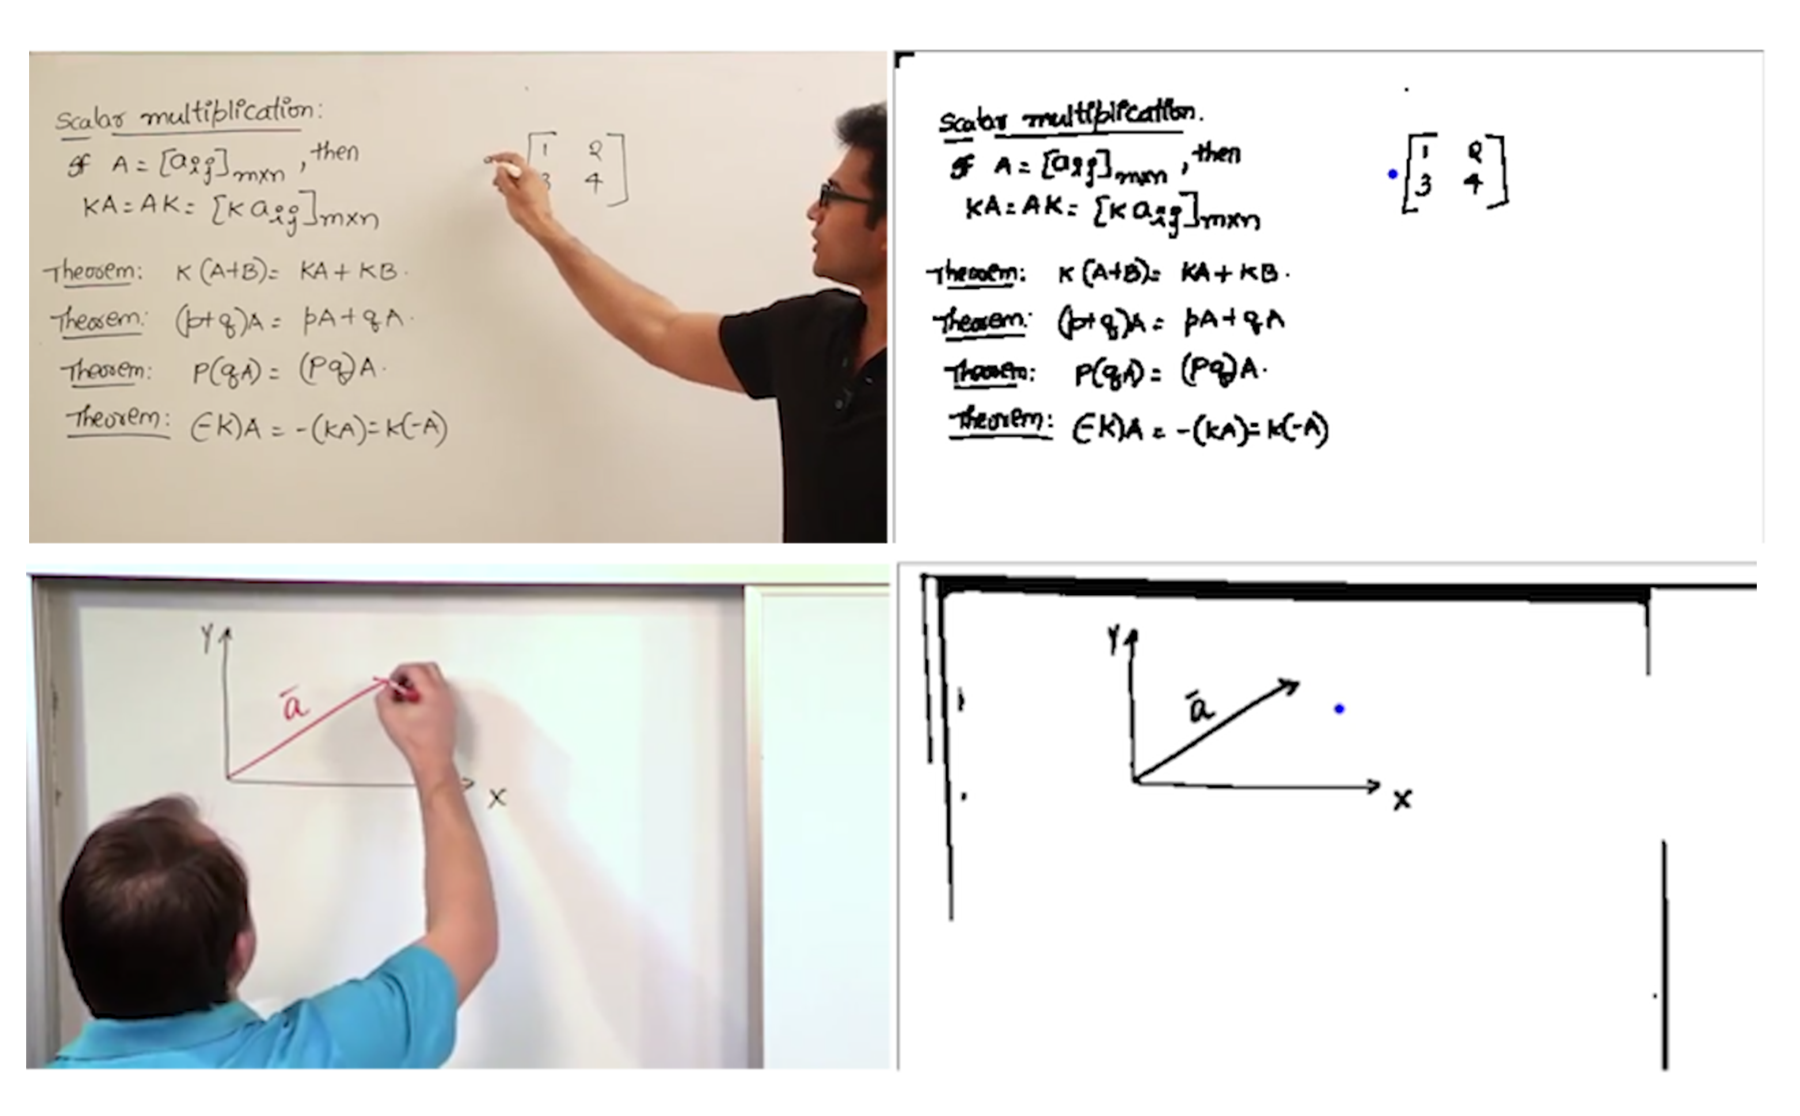 Scalar multiplication:
If A = [aij]m×n, then
KA = AK = [K aij]m×n
Theorem: K(A+B) = KA + KB.
Theorem: (p+q)A = pA + qA.
Theorem: P(qA) = (Pq)A.
Theorem: (-K)A = -(KA) = K(-A)
1 2
3 4
Scalar multiplication.
If A = [aij]m×n, then
KA = AK = [K aij]m×n
Theorem: K(A+B) = KA + KB.
Theorem: (p+q)A = pA + qA
Theorem: P(qA) = (Pq)A.
Theorem: (-K)A = -(KA) = K(-A)
1 2
3 4
Y
ā
X
Y
ā
X